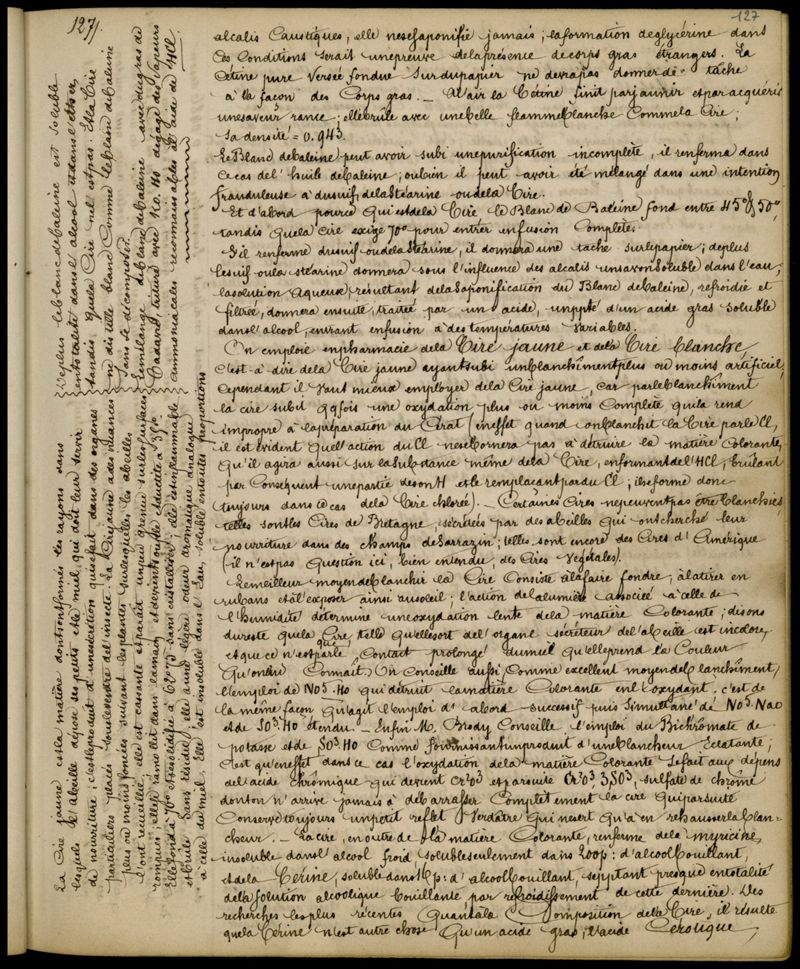 127
127.
alcalis Caustiques, elle ne se saponifie jamais; la formation de glycérine dans
Ces Conditions serait une preuve de la présence de corps gras étrangers. La
Cétine pure Versée fondue sur du papier ne devra pas donner de tâche
à la façon des Corps gras. _ A l'air la Cétine finit par jaunir et par acquérir
une saveur rance; elle brûle avec une belle flamme blanche Comme la Cire;
Sa densité = 0.943.
Le Blanc de baleine peut avoir subi une purification incomplète, il renferma dans
Ce cas de l'huile de baleine; ou bien il peut avoir été mélangé dans une intention
frauduleuse à du suif, de la stéarine ou de la Cire.
Et d'abord pour ce qui est de la Cire le Blanc de Baleine fond entre 45° & 50°,
tandis que la Cire exige 70° pour entrer en fusion Complète.
S'il renferme du suif ou de la stéarine, il donnera une tache sur le papier; de plus
le suif ou la stéarine donnera sous l'influence des alcalis un savon soluble dans l'eau;
la solution aqueuse, résultant de la saponification du Blanc de baleine, refroidie et
filtrée, donnera ensuite, traitée par un acide, un ppté d'un acide gras soluble
dans l'alcool, entrant en fusion à des températures variables.
On emploie en pharmacie de la Cire jaune et de la Cire blanche,
C'est-à-dire de la Cire jaune ayant subi un blanchîment plus ou moins artificiel,
Cependant il vaut mieux employer de la Cire jaune, car par le blanchîment
la cire subit qqfois une oxydation plus ou moins Complète qui la rend
impropre à la préparation du Cérat (en effet quand on blanchit la Cire par le Cl,
il est évident que l'action du Cl ne se bornera pas à détruire la matière Colorante,
qu'il agira aussi sur la substance même de la Cire, en formant de l'HCl, brûlant
par Conséquent une partie de son H et le remplaçant par du Cl; il se forme donc
toujours dans ce cas de la Cire chlorée). _ Certaines Cires ne peuvent pas être blanchies
telles sont les Cires de Bretagne, sécrétées par des abeilles qui ont cherché leur
nourriture dans des champs de Sarrazin; telles sont encore des Cires d'Amérique
(il n'est pas Question ici, bien entendu, des Cires Végétales).
Le meilleur moyen de blanchir la Cire Consiste à la faire fondre, à la tirer en
rubans et à l'exposer ainsi au soleil; l'action de la lumière associée à celle de
l'Humidité détermine une oxydation lente de la matière Colorante; disons
du reste que la Cire, telle qu'elle sort de l'organe sécréteur de l'abeille est incolore,
et que ce n'est que par le Contact prolongé du miel qu'elle prend la Couleur
Qu'on lui Connait. On Conseille aussi, Comme excellent moyen de blanchîment,
l'emploi de NO5.HO qui détruit la matière Colorante en l'oxydant. C'est de
la même façon qu'agit l'emploi d'abord successif puis simultané de NO5.NaO
et de SO3.HO étendu. _ Enfin M. Brody Conseille l'emploi du Bichrômate de
potasse et de SO3.HO Comme fournissant un produit d'une blancheur Éclatante;
C'est qu'en effet dans ce cas l'oxydation de la matière Colorante se fait aux dépens
de l'acide chrômique qui devient Cr2O3 et par suite Cr2O3 3SO3, sulfate de chrôme
dont on n'arrive jamais à débarrasser Complètement la cire qui par suite
Conserve toujours un petit reflet Verdâtre qui ne sert qu'à en rehausser la blan-
cheur. _ La cire, en outre de la matière Colorante, renferme de la myricine,
insoluble dans l'alcool froid, soluble seulement dans 200p: d'alcool bouillant,
et de la Cérine, soluble dans p: d'alcool bouillant, se pptant presque en totalité
de la solution alcoolique bouillante par refroidissement de cette dernière. Des
recherches les plus récentes Quant à la Composition de la Cire, il résulte
que la Cérine n'est autre chose Qu'un acide gras, l'acide Cérotique,
De plus le blanc de baleine est soluble
en totalité dans l'alcool et dans l'éther,
tandis que la Cire ne l'est pas. Et la Cire
ne distille blanc Comme le blanc de baleine
sans se décomposer.
Le mélange de blanc de baleine avec du gras de
Cadavre, trituré avec KO.HO dégage des Vapeurs
ammoniacales reconnaissables à l'aide de HCl.
La Cire jaune est la matière dont sont formés les rayons dans
lesquels l'abeille dépose ses petits et le miel qui doit leur servir
de nourriture; c'est le produit d'une sécrétion qui se fait dans des organes
particuliers placés sous le ventre de l'insecte. La Cire jaune a des nuances
plus ou moins foncées suivant les plantes sur lesquelles les abeilles
l'ont recueillie; elle est cassante et paraît un peu grenue sur les surfaces
rompues; elle se ramollit dans la main, et devient ductile à 35°.
Elle fond à 70° et se solidifie à 62° sans cristalliser; elle est inflammable
et brûle sans résidu; elle a une légère odeur aromatique analogue
à celle du miel. Elle est insoluble dans l'Eau, soluble en toutes proportions